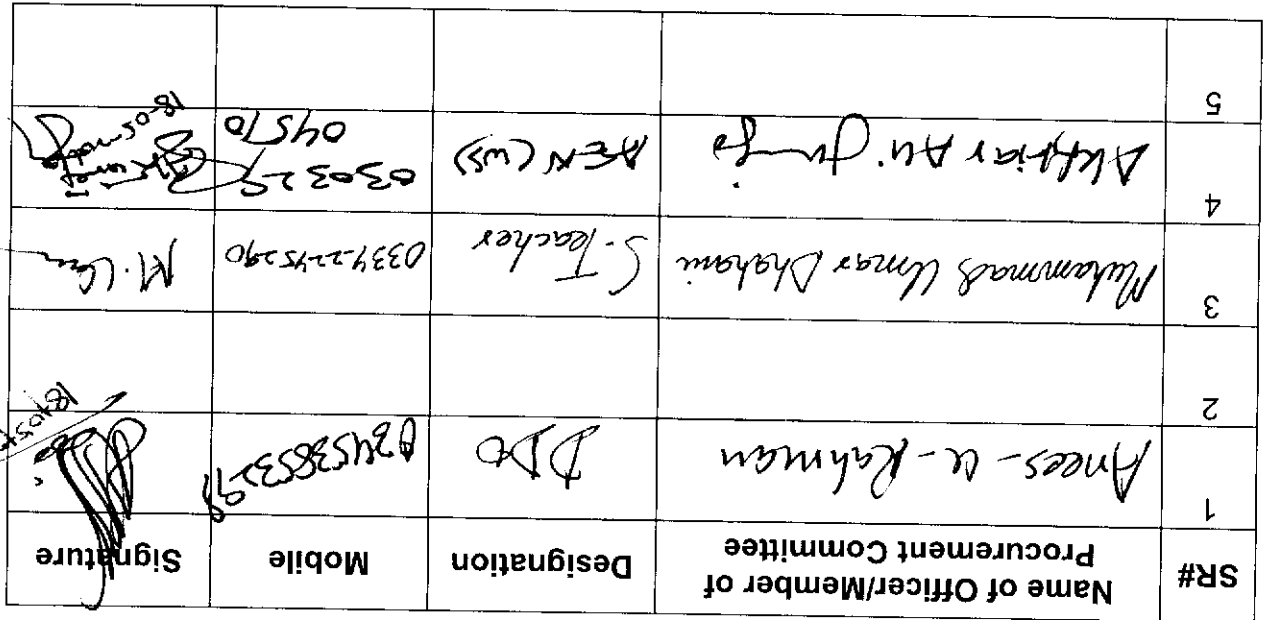 SR# Name of Officer/Member of Procurement Committee Designation Mobile Signature
1 Anees-u-Rahman DDO 03453853298
2
3 Muhammad Umar Dhahani S.Teacher 0334-2245290
4 Akhtiar Ali AEN (WS) 0303 25 04570 18-05
5